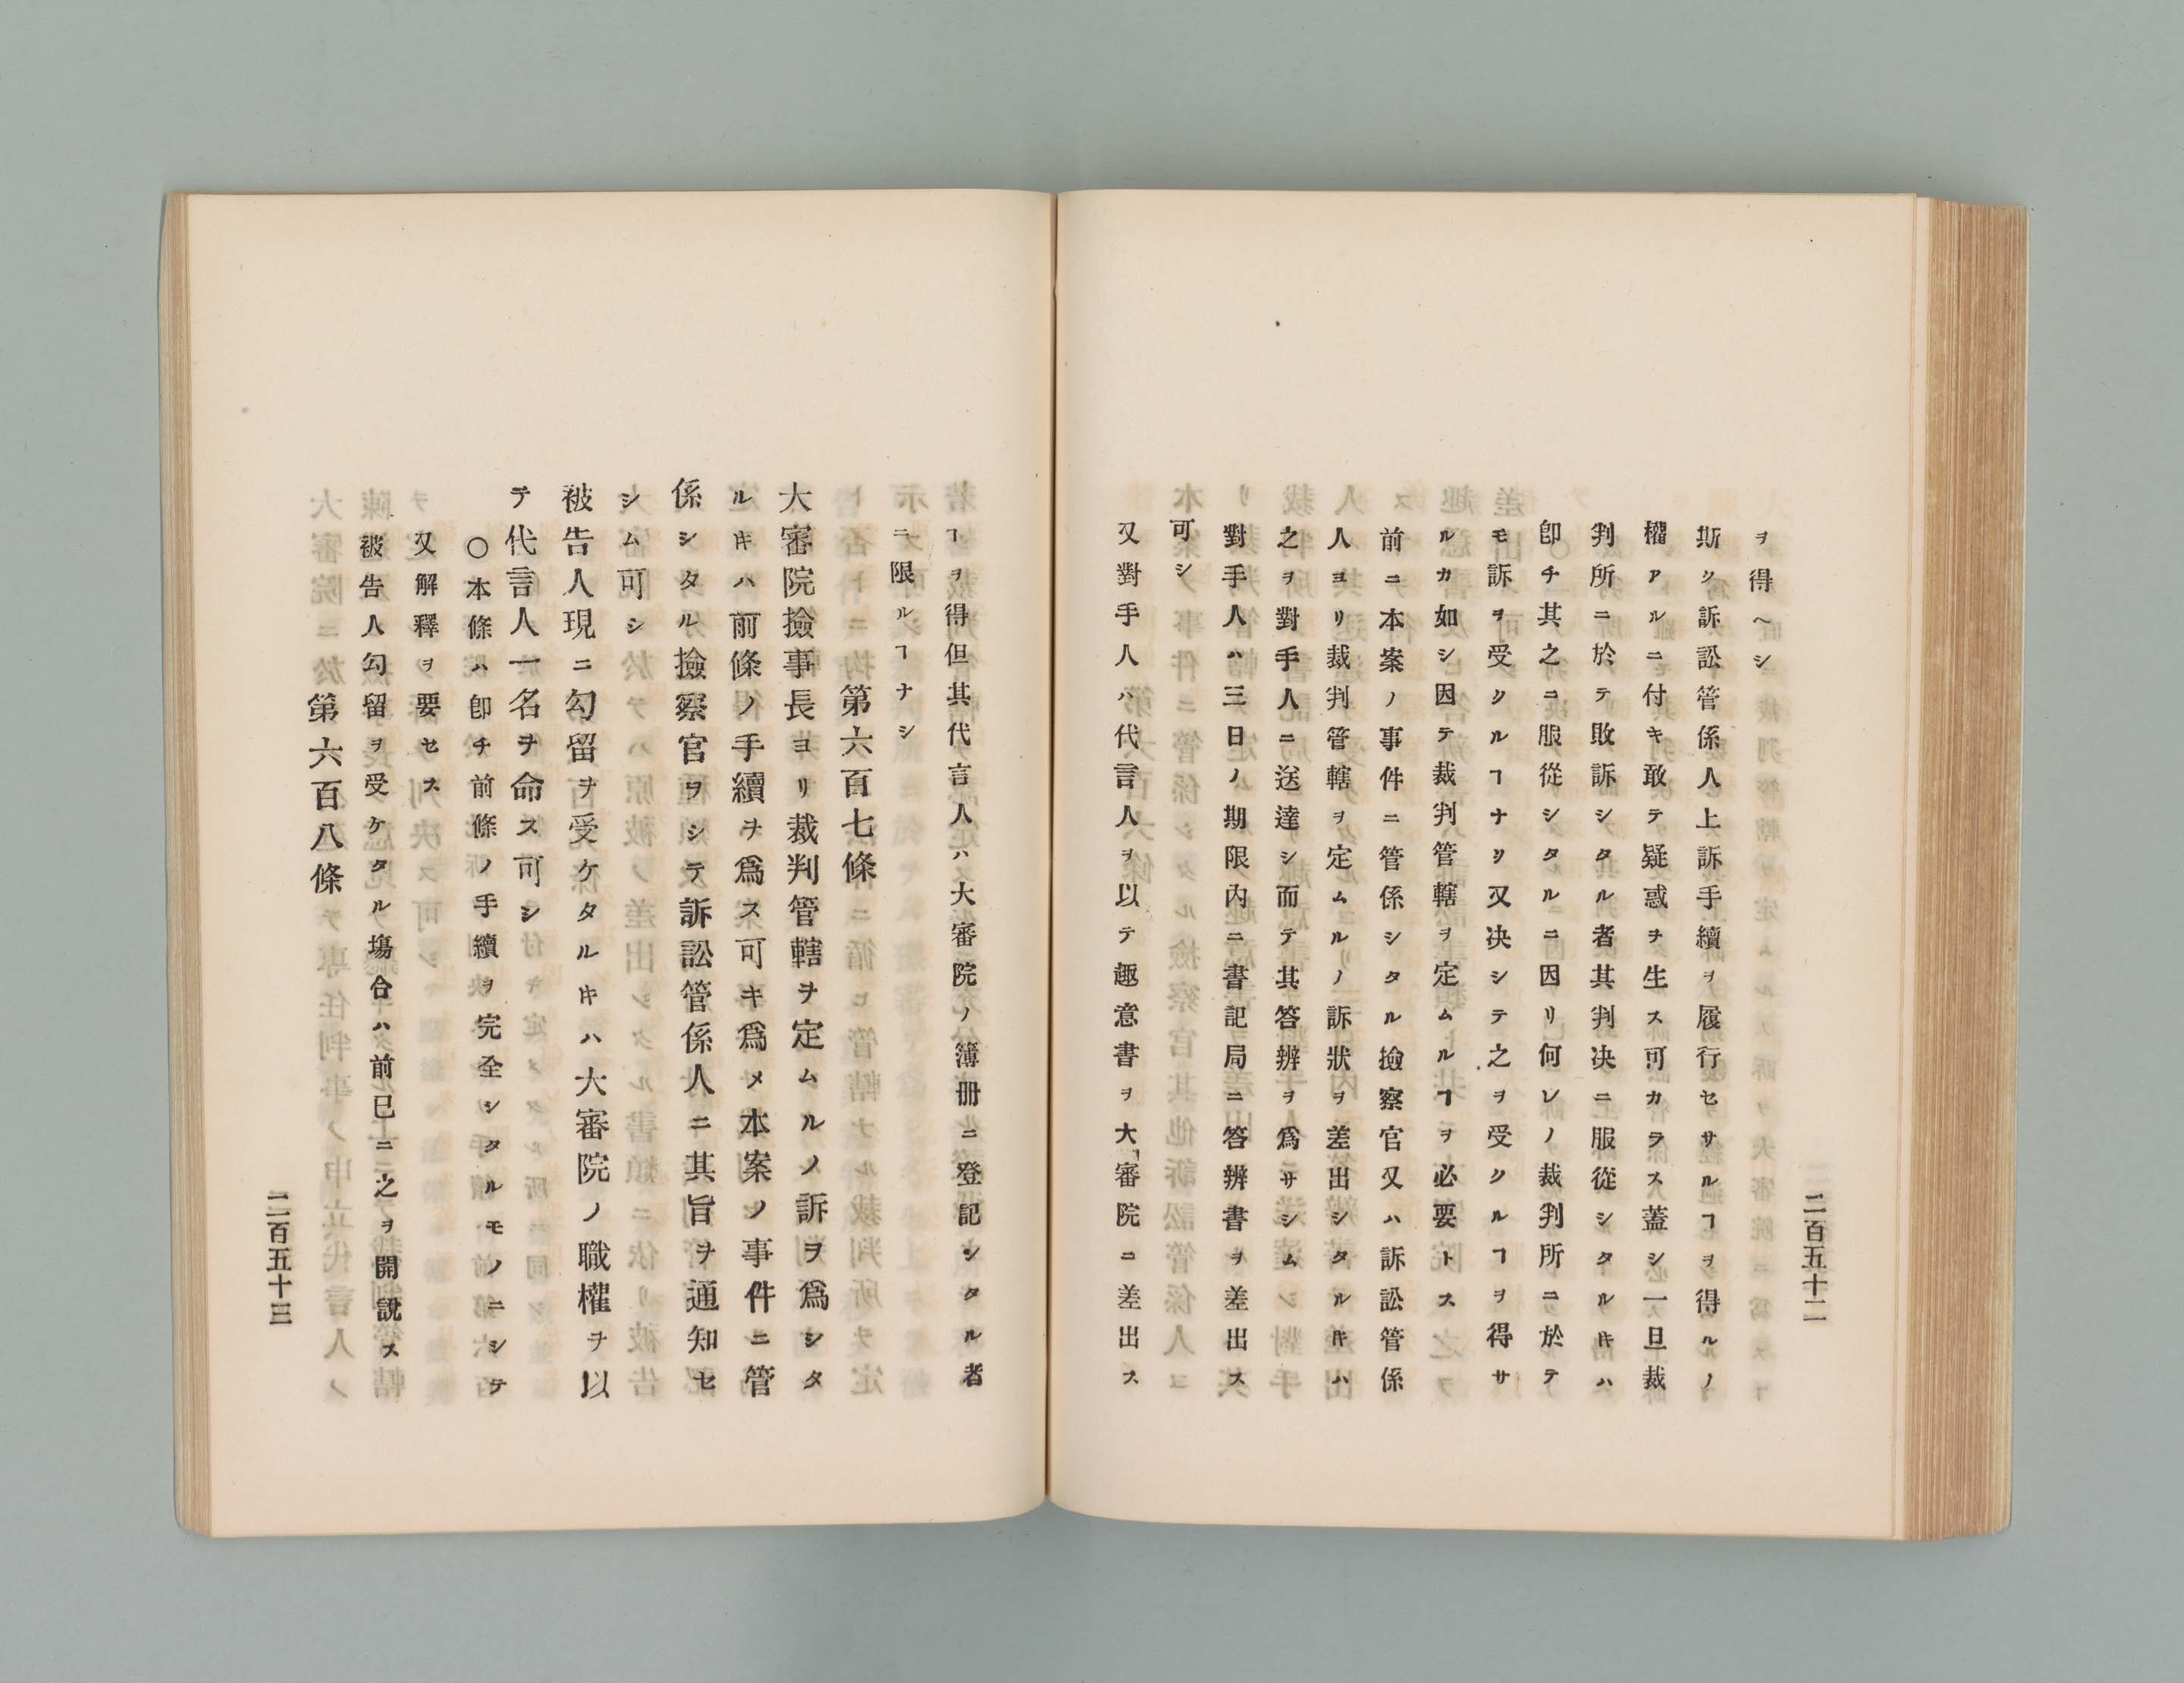 ヲ得ヘシ
斯ク訴訟管係人上訴手續ヲ履行セサルヿヲ得ルノ
權アルニ付キ敢テ疑惑ヲ生ス可カラス蓋シ一旦裁
判所ニ於テ敗訴シタル者其判决ニ服從シタルキハ
卽チ其之ニ服從シタルニ因リ何レノ裁判所ニ於テ
モ訴ヲ受クルヿナク又决シテ之ヲ受クルヿヲ得サ
ルカ如シ因テ裁判管轄ヲ定ムルヿヲ必要トス之ヲ
前ニテ本案ノ事件ニ管係シタル撿察官又ハ訴訟管係
人ヨリ裁判管轄ヲ定ムルノ訴狀ヲ差出シタルキハ
之ヲ對手人ニ送達シ而テ其答辨ヲ爲サシム
對手人ハ三日ノ期限內ニ書記局ニ答辨書ヲ差出ス
可シ
又對手人ハ代言人ヲ以テ趣意書ヲ大審院ニ差出ス
二百五十二
ヿヲ得但其代言人ハ大審院ノ簿册ニ登記シタル者
ニ限ルヿナシ
第六百七條
大審院撿事長ヨリ裁判管轄ヲ定ムルノ訴ヲ爲シタ
ルキハ前條ノ手續ヲ爲ス可キ爲メ本案ノ事件ニ管
係シタル撿察官ヲシテ訴訟管係人ニ其旨ヲ通知セ
シム可シ
被告人現ニ勾留ヲ受ケタルキハ大審院ノ職權ヲ以
テ代言人一名ヲ命ス可シ
○本條ハ卽チ前條ノ手續ヲ完全シタルモノニシテ
又解釋ヲ要セス
被告人勾留ヲ受ケタル塲合ハ前巳ニ之ヲ開說ス
第六百八條
二百五十三